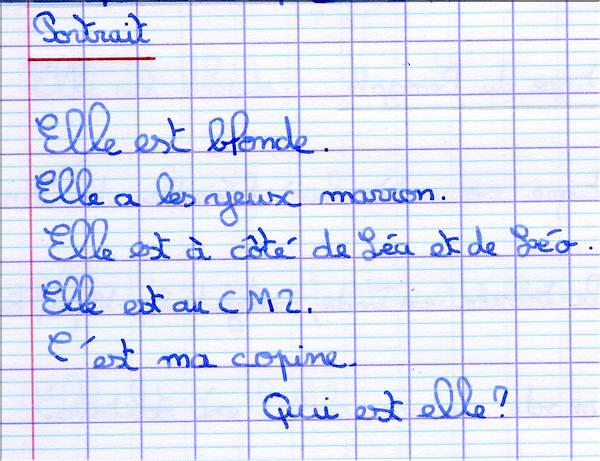 Portrait
Elle est blonde.
Elle a les yeux marron.
Elle est à côté de Léa et de Léo.
Elle est au CM2.
C'est ma copine.
Qui est elle?